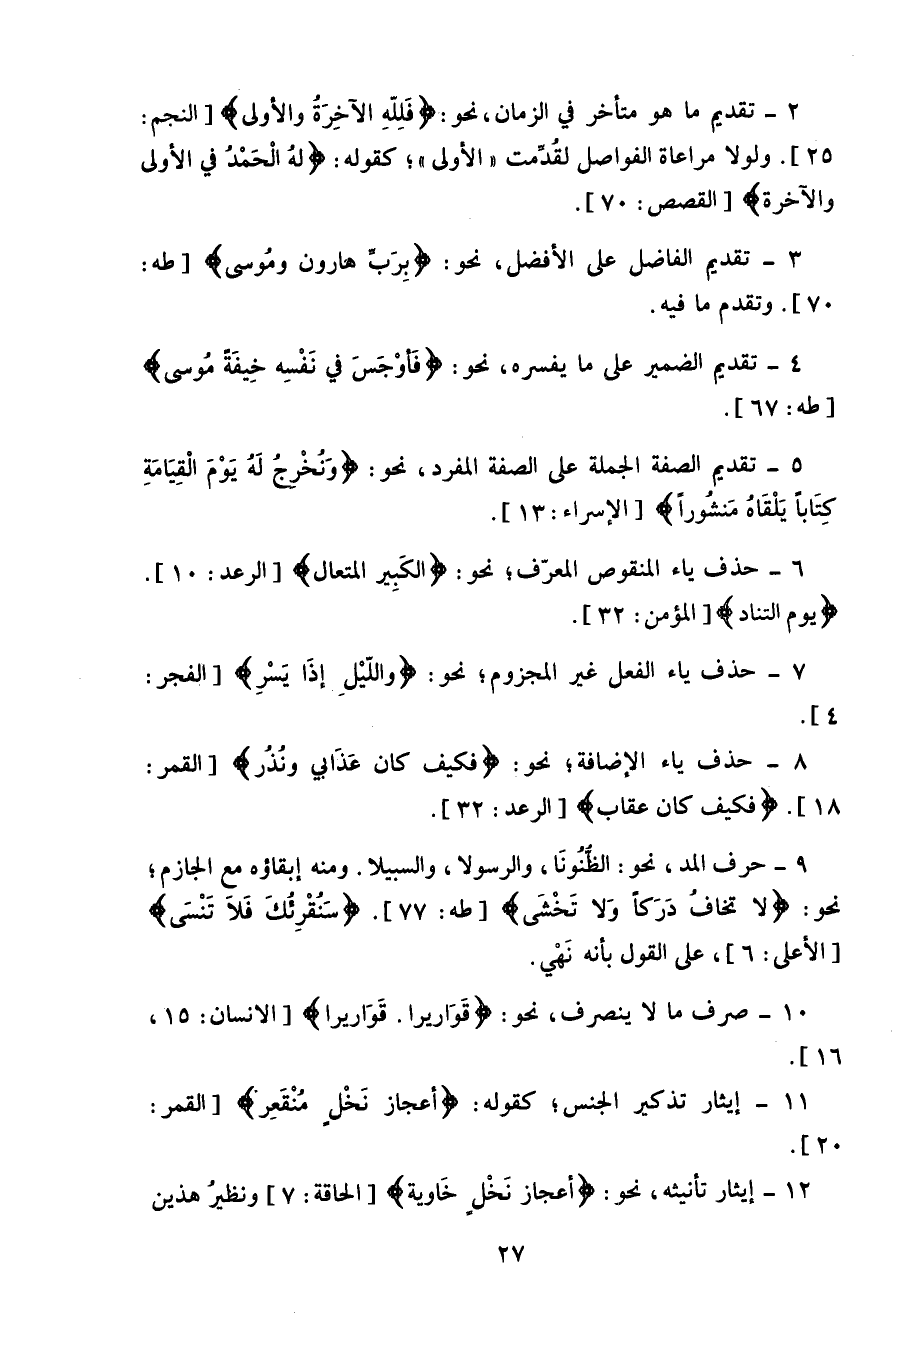 ٢ ـ تقديم ما هو متأخر في الزمان، نحو: ﴿فَلِلّهِ الآخِرَةُ والأولى﴾ [النجم:
٢٥]. ولولا مراعاة الفواصل لقُدِّمت «الأولى»؛ كقوله: ﴿لهُ الْحَمْدُ في الأولى
والآخرة﴾ [القصص: ٧٠].
٣ ـ تقديم الفاضل على الأفضل، نحو: ﴿بِرَبِّ هارون ومُوسى﴾ [طه:
٧٠]. وتقدم ما فيه.
٤ ـ تقديم الضمير على ما يفسره، نحو: ﴿فَأوْجَسَ في نَفْسِه خِيفَةً مُوسى﴾
[طه: ٦٧].
٥ ـ تقديم الصفة الجملة على الصفة المفرد، نحو: ﴿وَنُخْرِجُ لَهُ يَوْمَ الْقِيَامَةِ
كِتَاباً يَلْقَاهُ مَنشُوراً﴾ [الإسراء: ١٣].
٦ ـ حذف ياء المنقوص المعرّف؛ نحو: ﴿الكَبِير المتعال﴾ [الرعد: ١٠].
﴿يوم التناد﴾ [المؤمن: ٣٢].
٧ ـ حذف ياء الفعل غير المجزوم؛ نحو: ﴿واللّيْلِ إذَا يَسْرِ﴾ [الفجر:
٤].
٨ ـ حذف ياء الإضافة؛ نحو: ﴿فكيف كان عَذَابي ونُذُر﴾ [القمر:
١٨]. ﴿فكيف كان عقاب﴾ [الرعد: ٣٢].
٩ ـ حرف المد، نحو: الظُّنُونَا، والرسولا، والسبيلا. ومنه إبقاؤه مع الجازم؛
نحو: ﴿لا تخافُ دَرَكاً وَلا تَخْشَى﴾ [طه: ٧٧]. ﴿سَنُقْرِئُكَ فَلاَ تَنْسَى﴾
[الأعلى: ٦]، على القول بأنه نَهْي.
١٠ ـ صرف ما لا ينصرف، نحو: ﴿قَوَاريرا. قَوَاريرا﴾ [الانسان: ١٥،
١٦].
١١ ـ إيثار تذكير الجنس؛ كقوله: ﴿أعجاز نَخْلٍ مُنْقَعِر﴾ [القمر:
٢٠].
١٢ ـ إيثار تأنيثه، نحو: ﴿أعجاز نَخْلٍ خَاوية﴾ [الحاقة: ٧] ونظيرُ هذين
٢٧